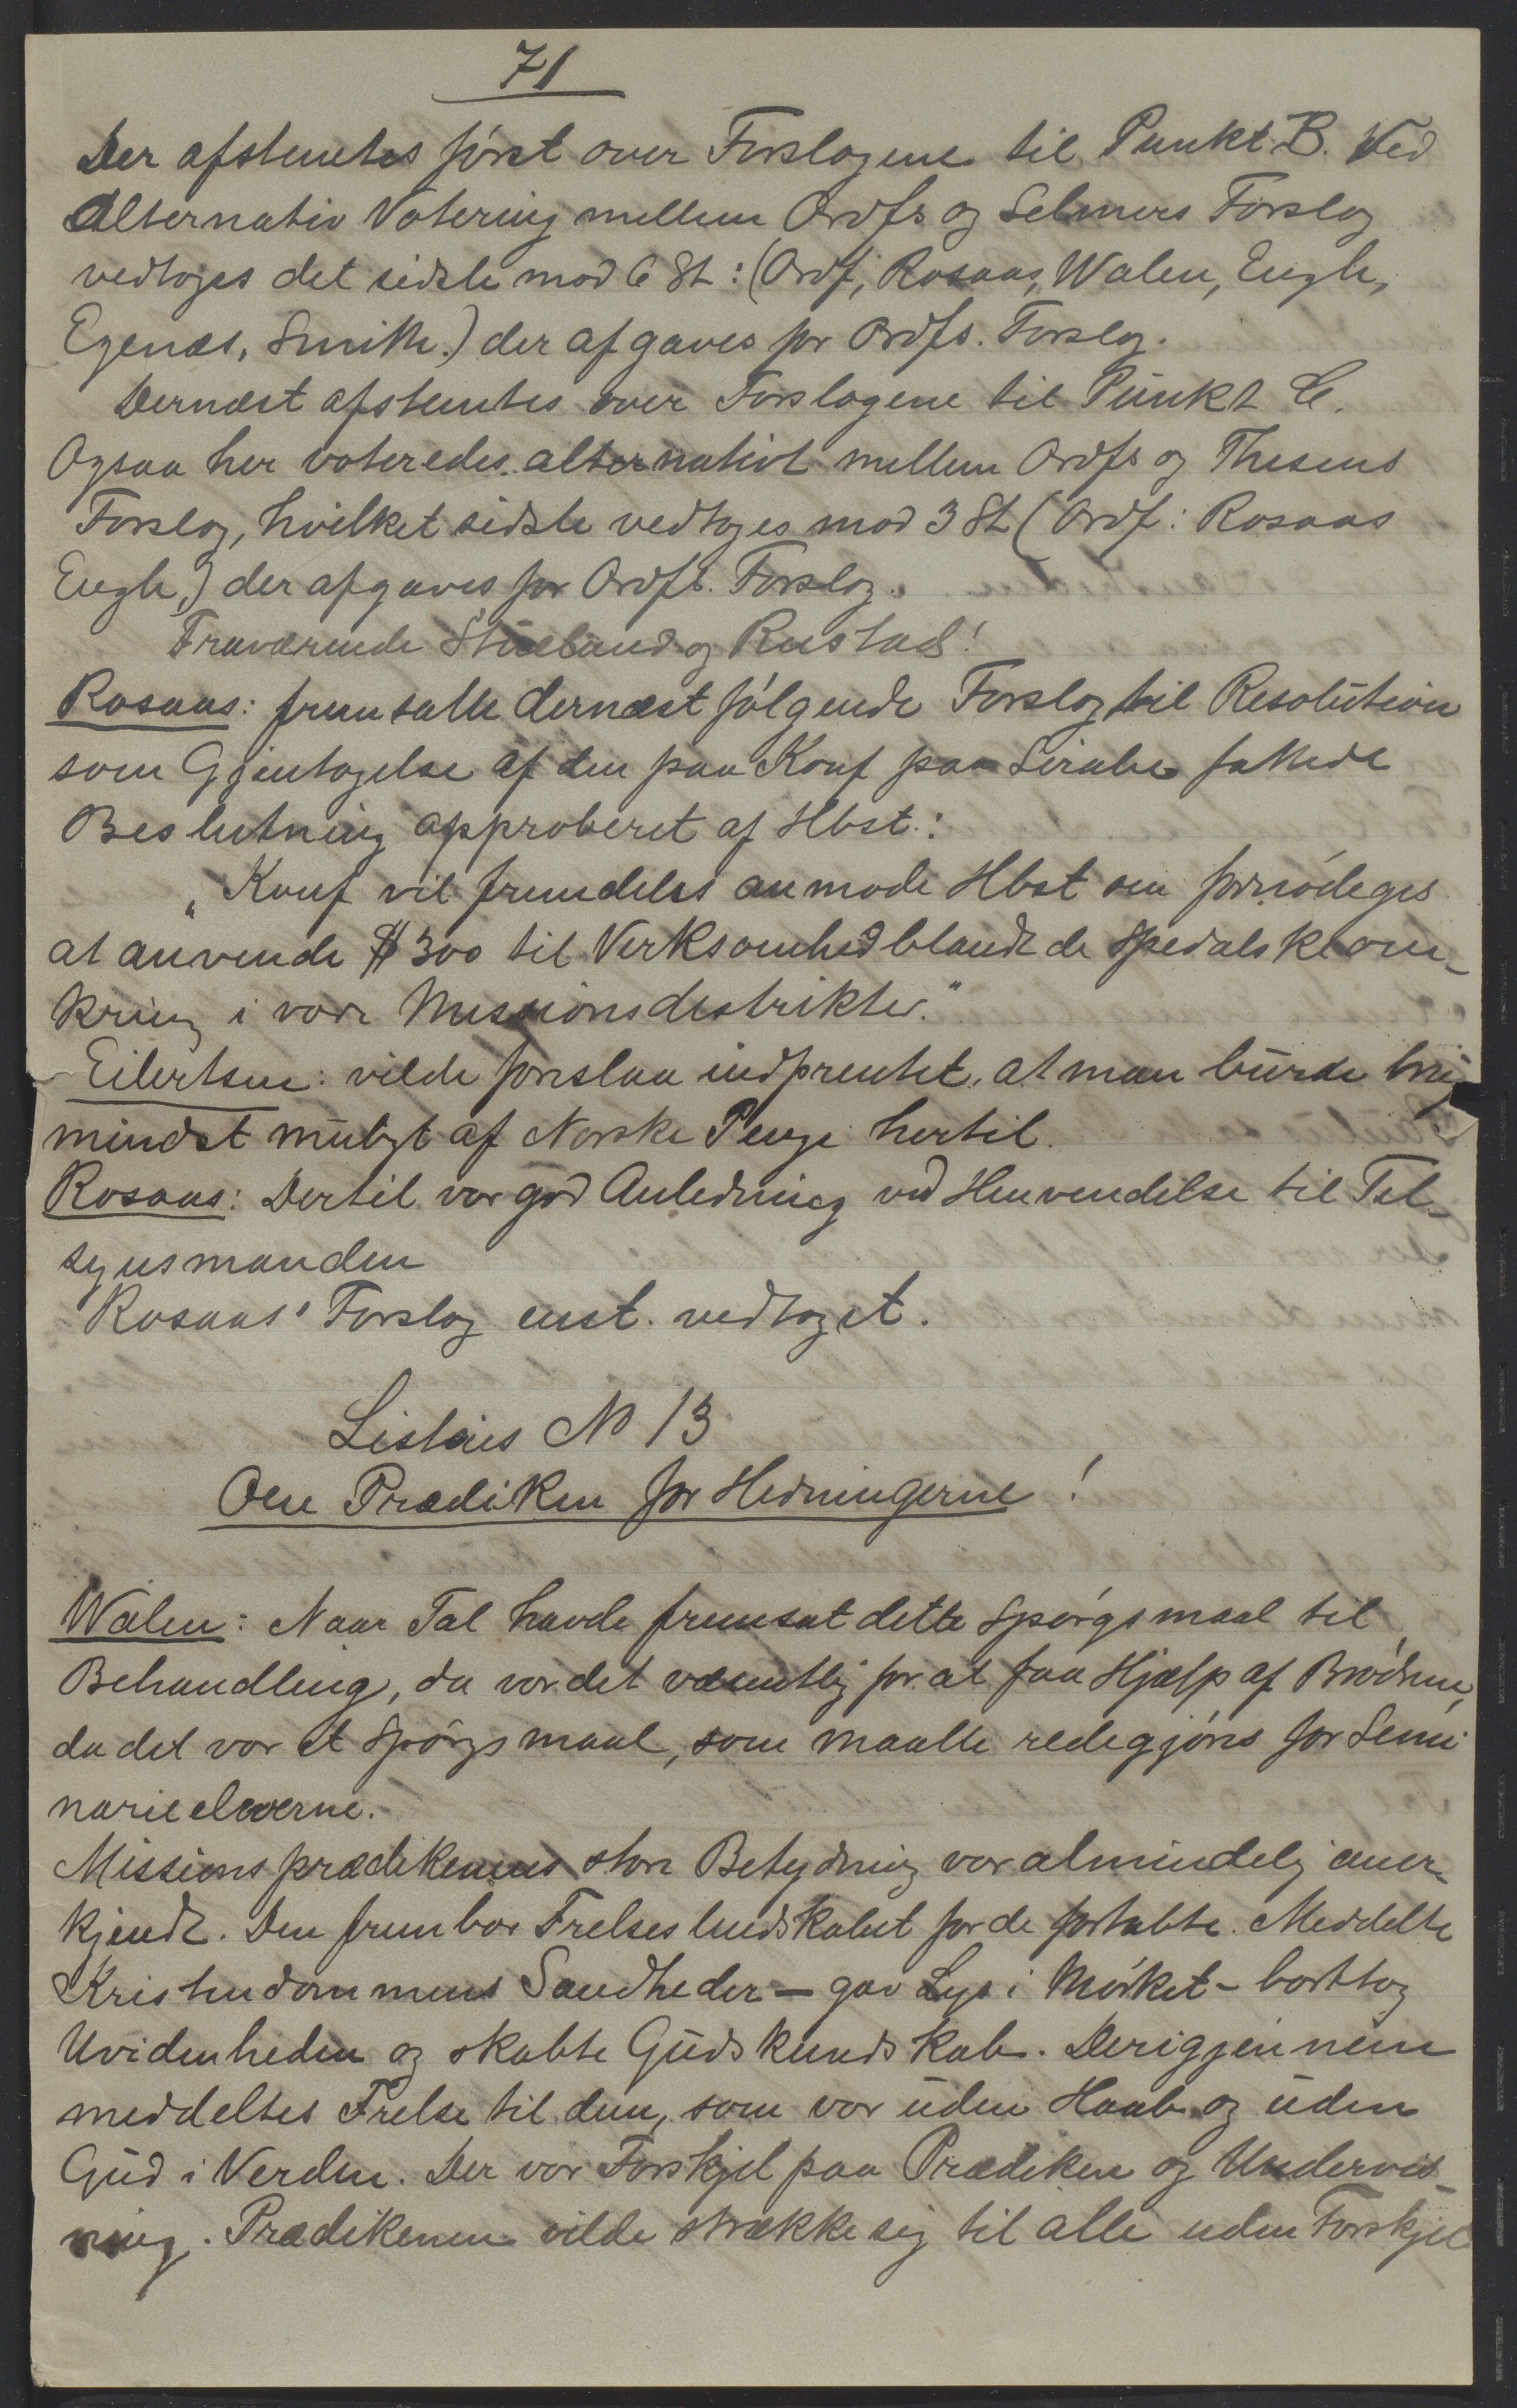 71
Der afstemtes först over Forslagene til Punkt B. Ved
Alternativ Votering mellem Ordfs og Selmers Forslag
vedtoges det sidste mod 6 St: (Ordf, Rosaas, Walen, Engh,
Egenæs, Smith.) der afgaves for Ordfs. Forslag.
Dernæst afstemtes over Forslagene til Punkt C.
Ogsaa her voteredes alternativt mellem Ordfs og Thesens
Forslag, hvilket sidste vedtoges mod 3 St (Ordf: Rosaas
Engh,) der afgaves for Ordfs. Forslag.
Fraværende Stueland og Rustad!
Rosaas: fremsatte dernæst fölgende Forslag til Resolution
som Gjentagelse af den paa Konf paa Sirabe fattede
Beslutning approberet af Hbst.:
"Konf vil fremdeles anmode Hbst om fornödeges
at anvende $ 300 til Verksomhed blandt de Spedalske om-
kring i vore Missionsdistrikter."
Eilertsen: vilde forslaa indprentet, at man burde bru
mindst muligt af Norske Penge hertil.
Rosaas: Dertil var god Anledning ved Henvendelse til Til-
synsmanden
Rosaas' Forslag enst. vedtaget.
Listens No 13
Om Prædiken for Hedningerne!
Walen: Naar Tal havde fremsat dette Spörgsmaal til
Behandling, da var det væsentlig for at faa Hjælp af Brödrene,
da det var et Spörgsmaal, som maatte redegjöres for Semi
narieeleverne.
Missionsprædikenens store Betydning var almindelig aner-
kjendt. Den frembar Frelsesbudskabet for de fortabte. Meddelte
Kristendommens Sandheder – gav Lys i Mörket – borttog
Uvidenheden og skabte Gudskundskab. Derigjennem
meddeltes Frelse til dem, som var uden Haab og uden
Gud i Verden. Der var Forskjel paa Prædiken og Undervis-
ning. Prædikenen vilde strække sig til alle uden Forskjel